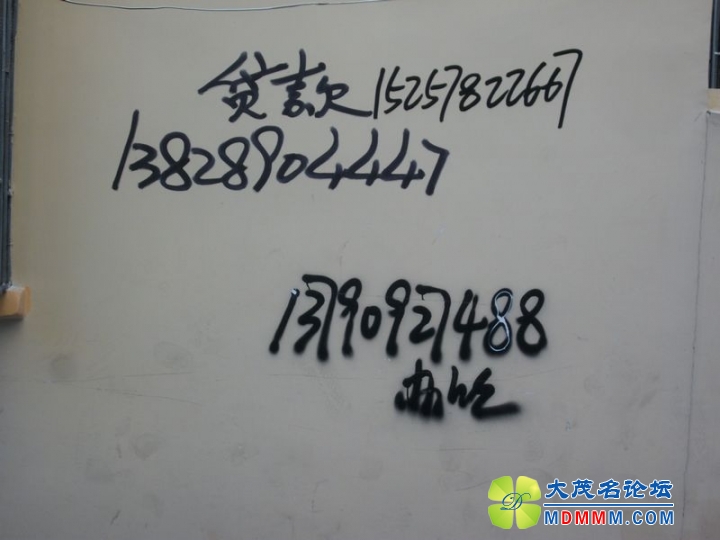 贷款15257822667
13828904447
13790927488
大茂名论坛
MDMMM.COM